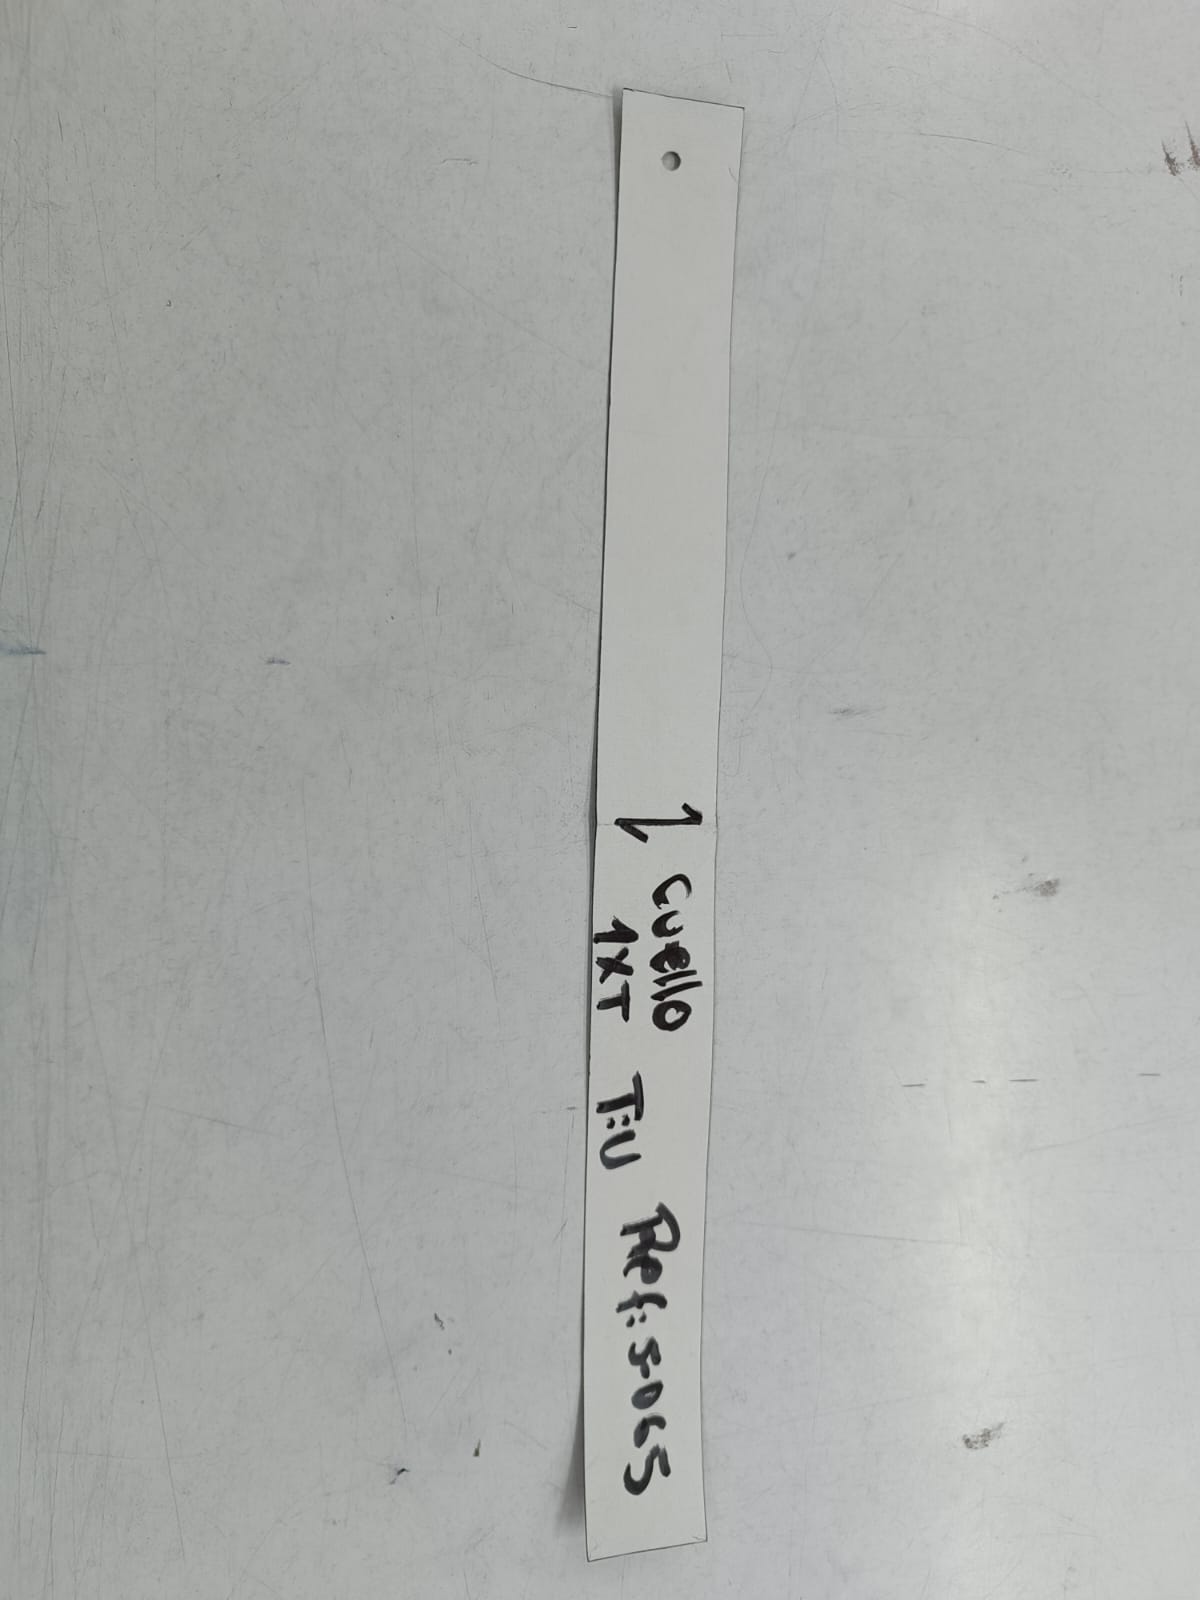 cuello
1XT T:U
Ref: 5065